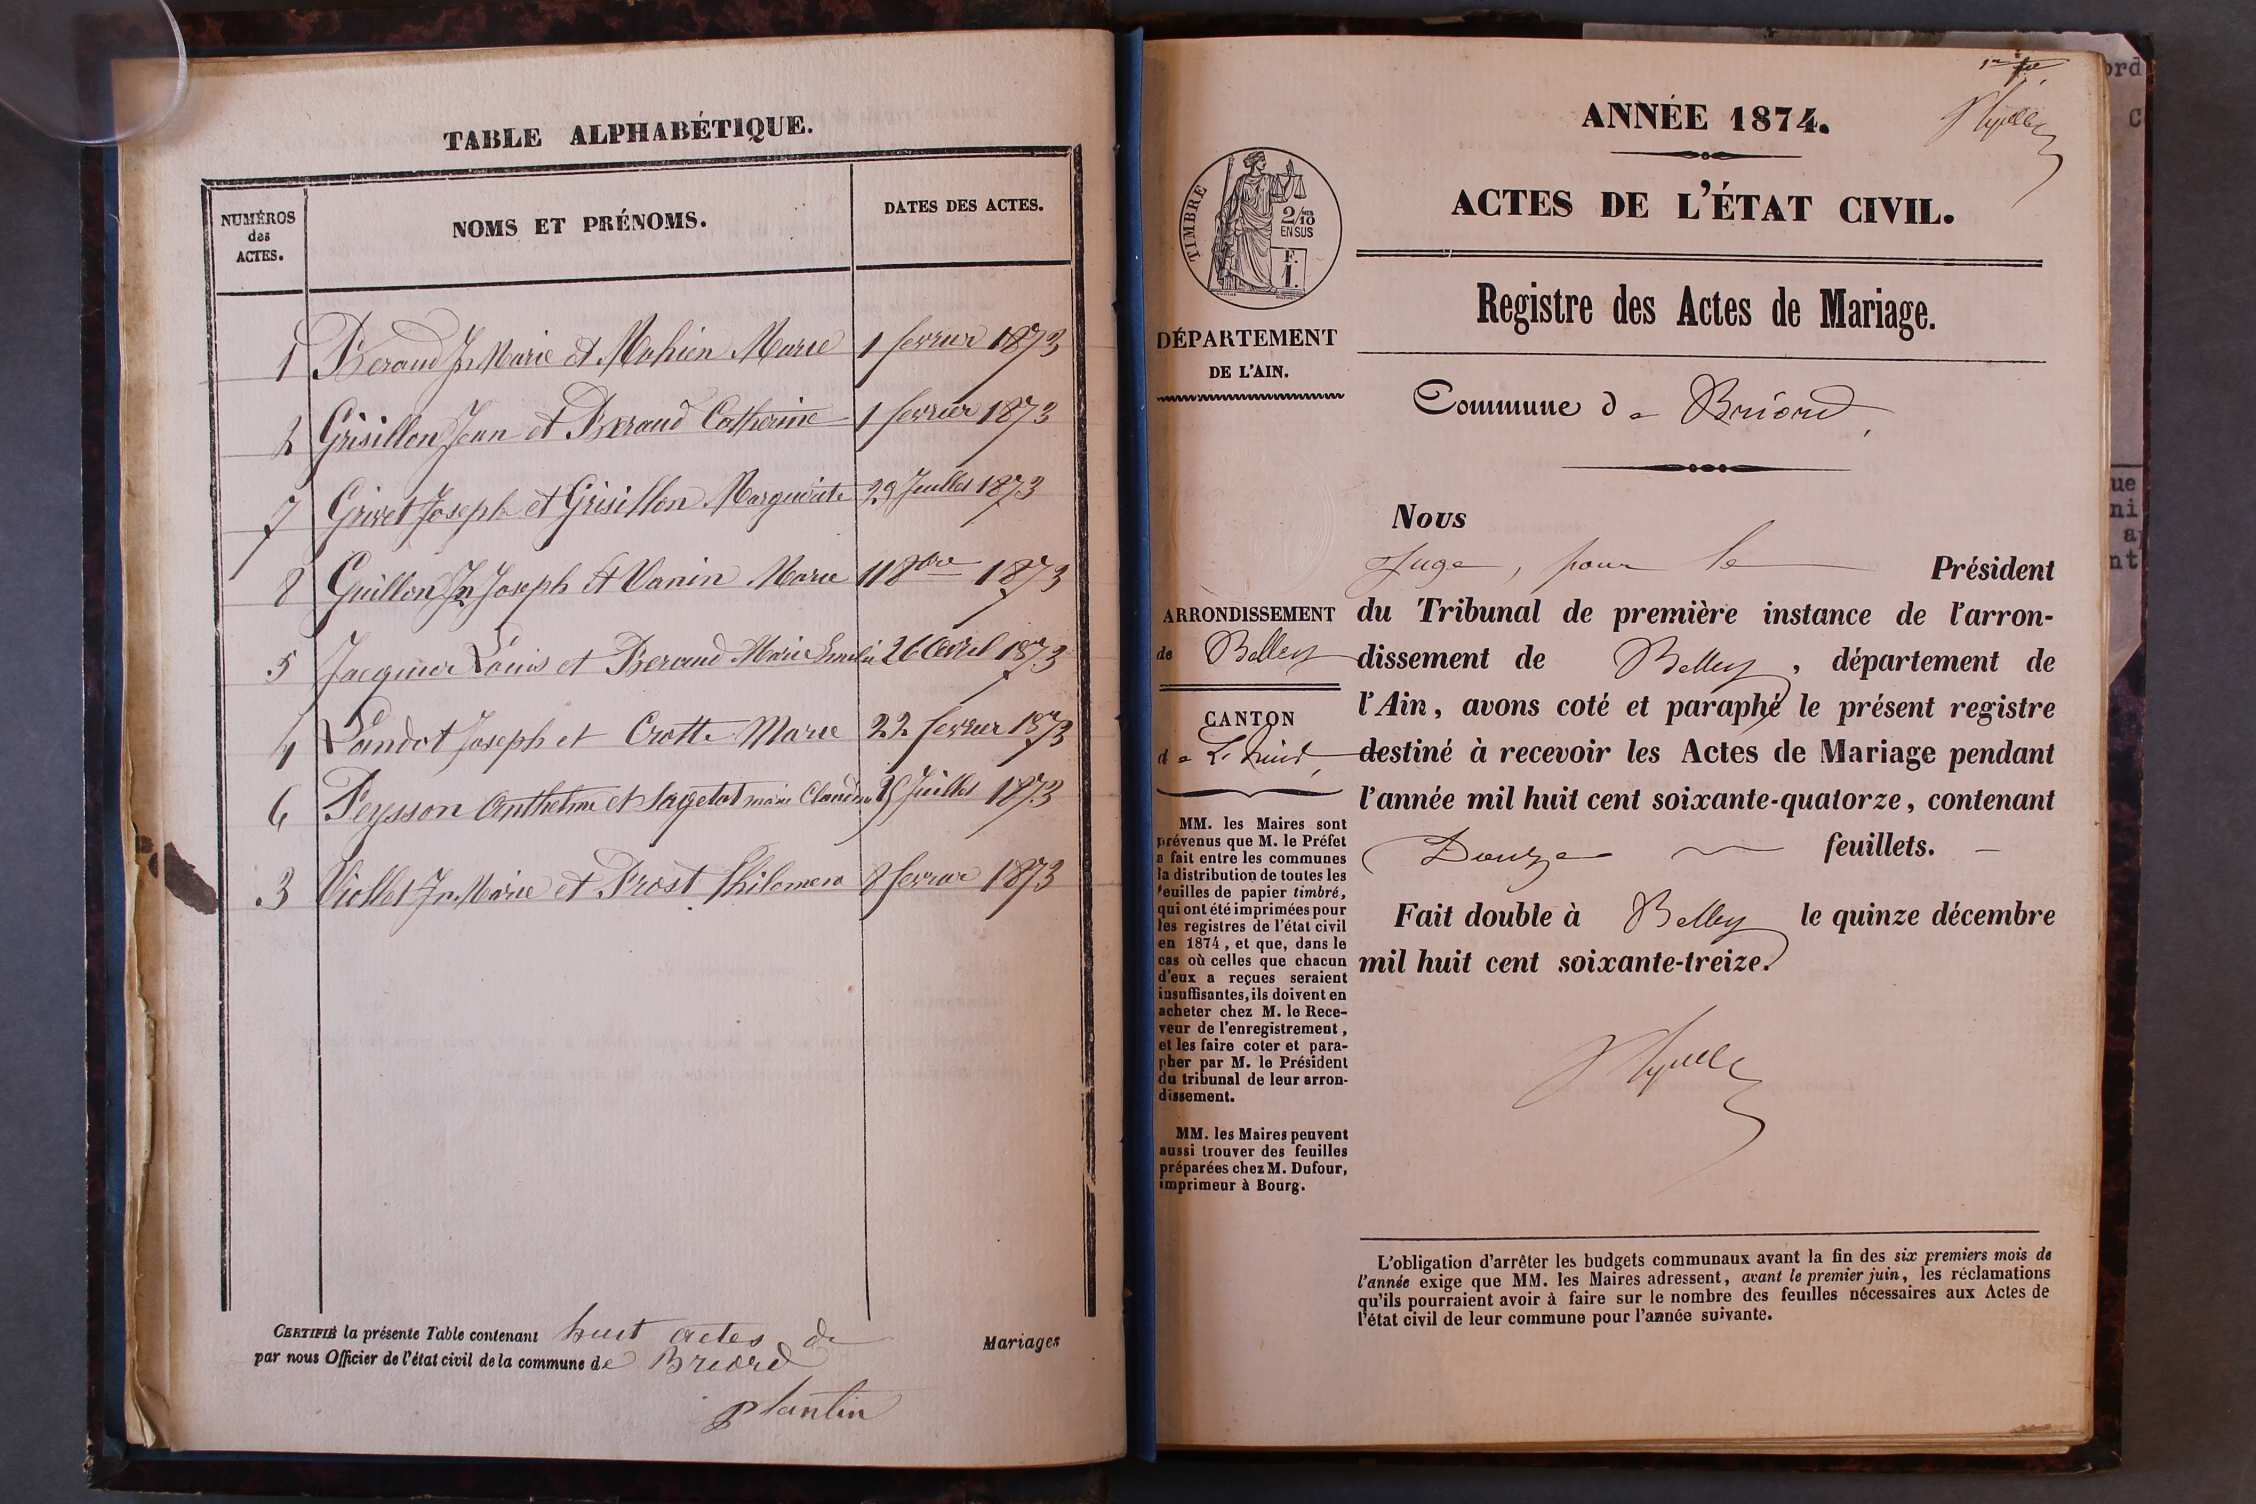 TABLE ALPHABÉTIQUE.
NUMÉROS
des
ACTES.
NOMS ET PRÉNOMS.
DATES DES ACTES.
1 Beraud Jn Marie et Mahien Marie 1 fevrier 1873
2 Grisillon Jean et Beraud Catherine 1 fevrier 1873
7 Grivet Joseph et Grisillon Marguerite 29 Juillet 1873
8 Guillon Jn Joseph et Vanin Marie 11 8bre 1873
5 Jacquier Louis et Beraud Marie Emelie 26 Avril 1873
4 Landot Joseph et Crotte Marie 22 fevrier 1873
6 Peysson Anthelme et Sagetat marie Juillet 1873
3 Viollet Jn Marie et Prost Philomena 8 fevrier 1873
CERTIFIÉ la présente Table contenant huit actes de Mariages
par nous Officier de l'état civil de la commune de Briord
plantin
1er
ANNÉE 1874.
ACTES DE L'ÉTAT CIVIL.
TIMBRE
2/10
EN SUS
F.
1.
Registre des Actes de Mariage.
DÉPARTEMENT
DE L'AIN.
Commune de Briord
ARRONDISSEMENT
de Belley
CANTON
de
MM. les Maires sont
prévenus que M. le Préfet
a fait entre les communes
la distribution de toutes les
feuilles de papier timbré,
qui ont été imprimées pour
les registres de l'état civil
en 1874, et que, dans le
cas où celles que chacun
d'eux a reçues seraient
insuffisantes, ils doivent en
acheter chez M. le Rece-
veur de l'enregistrement,
et les faire coter et para-
pher par M. le Président
du tribunal de leur arron-
dissement.
MM. les Maires peuvent
aussi trouver des feuilles
préparées chez M. Dufour,
imprimeur à Bourg.
Nous
Juge, pour le Président
du Tribunal de première instance de l'arron-
dissement de Belley, département de
l'Ain, avons coté et paraphé le présent registre
destiné à recevoir les Actes de Mariage pendant
l'année mil huit cent soixante-quatorze, contenant
Douze feuillets.
Fait double à Belley le quinze décembre
mil huit cent soixante-treize.
L'obligation d'arrêter les budgets communaux avant la fin des six premiers mois de
l'année exige que MM. les Maires adressent, avant le premier juin, les réclamations
qu'ils pourraient avoir à faire sur le nombre des feuilles nécessaires aux Actes de
l'état civil de leur commune pour l'année suivante.
ord
C
ue
ni
a
nt